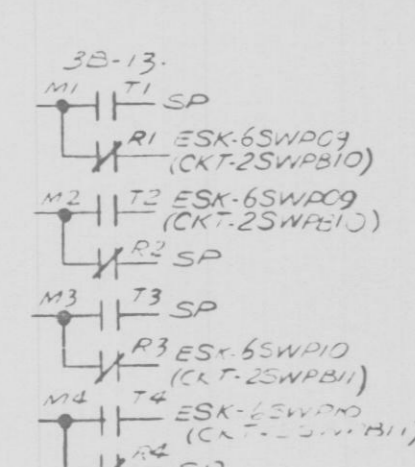 3B-13.
M1 T1 SP
R1 ESK-6SWP09
(CKT-2SWPB10)
M2 T2 ESK-6SWP09
(CKT-2SWPB10)
R2 SP
M3 T3 SP
R3 ESK-6SWP10
(CKT-2SWPB11)
M4 T4 ESK-6SWP10
(CKT-2SWPB11)
R4 SP